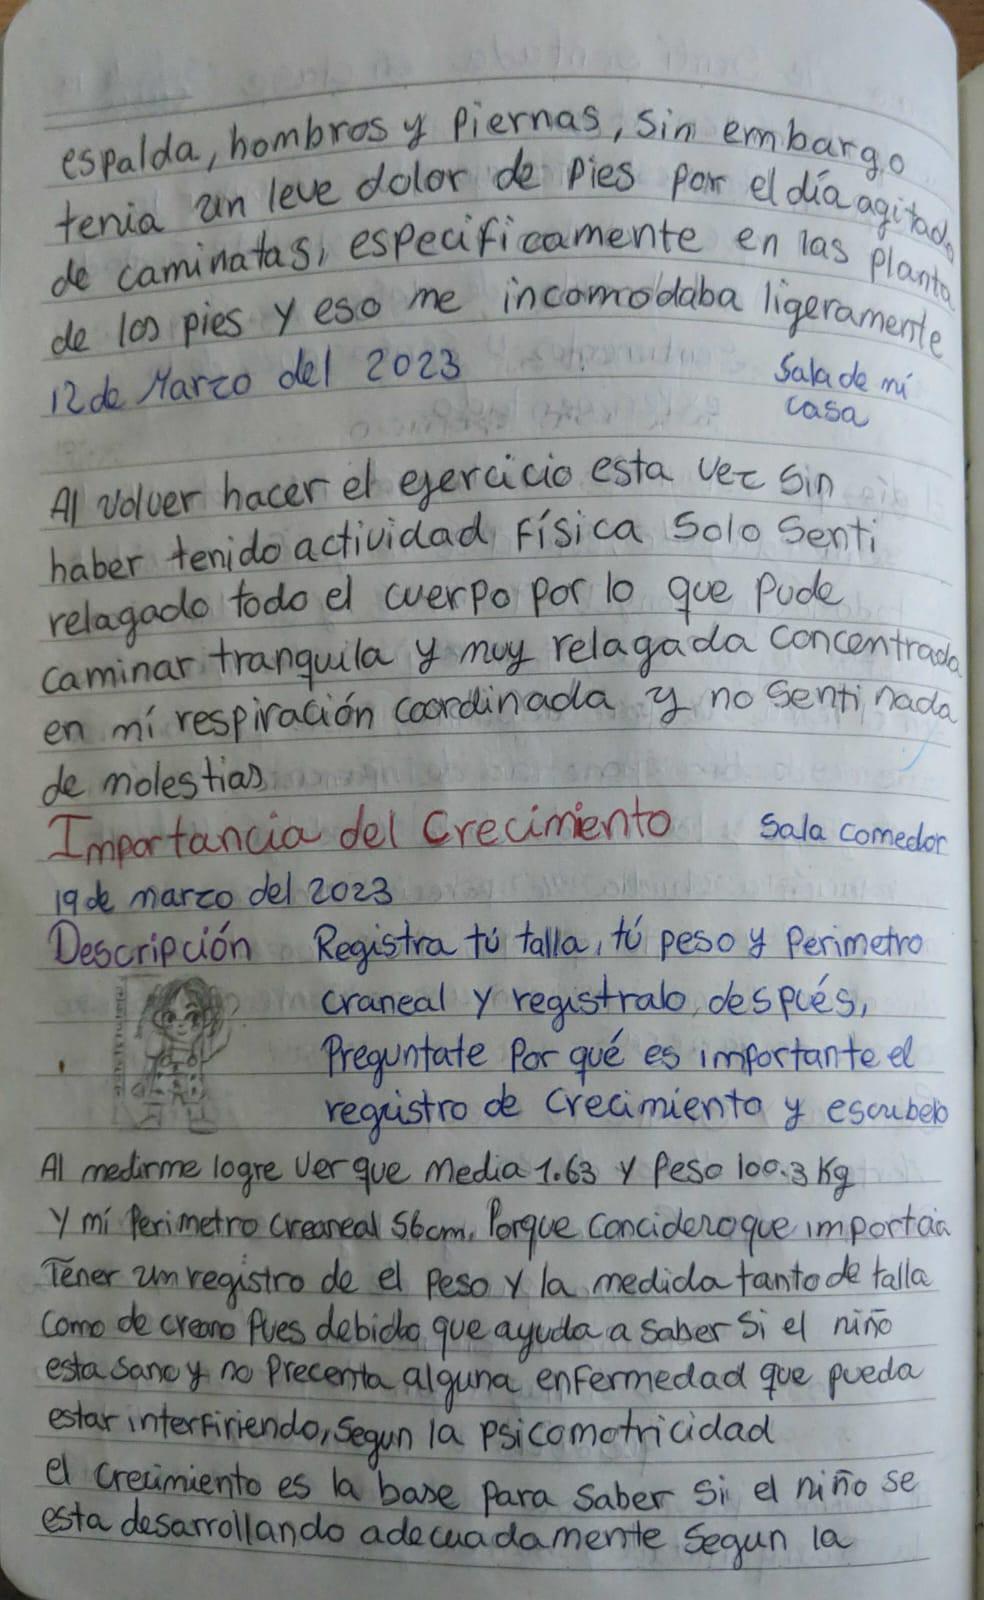 espalda, hombros y piernas, sin embargo
tenia un leve dolor de pies por el día agitado
de caminatas, especificamente en las planta
de los pies y eso me incomodaba ligeramente
12 de Marzo del 2023 Sala de mí
casa
Al volver hacer el ejercicio esta vez sin
haber tenido actividad física solo senti
relagado todo el cuerpo por lo que pude
caminar tranquila y muy relagada concentrada
en mí respiración coordinada y no senti nada
de molestias
Importancia del Crecimiento Sala comedor
19 de marzo del 2023
Descripción Registra tú talla, tú peso y Perimetro
craneal y registralo después,
Preguntate Por qué es importante el
registro de Crecimiento y escribelo
Al medirme logre ver que media 1.63 y Peso 100.3 Kg
y mí Perimetro creaneal 56cm, Porque concidero que
Tener un registro de el peso y la medida tanto de talla
como de creano Pues debido que ayuda a saber si el niño
esta sano y no Precenta alguna enfermedad que pueda
estar interfiriendo, segun la psicomotricidad
el crecimiento es la base para saber si el niño se
esta desarrollando adecuadamente segun la